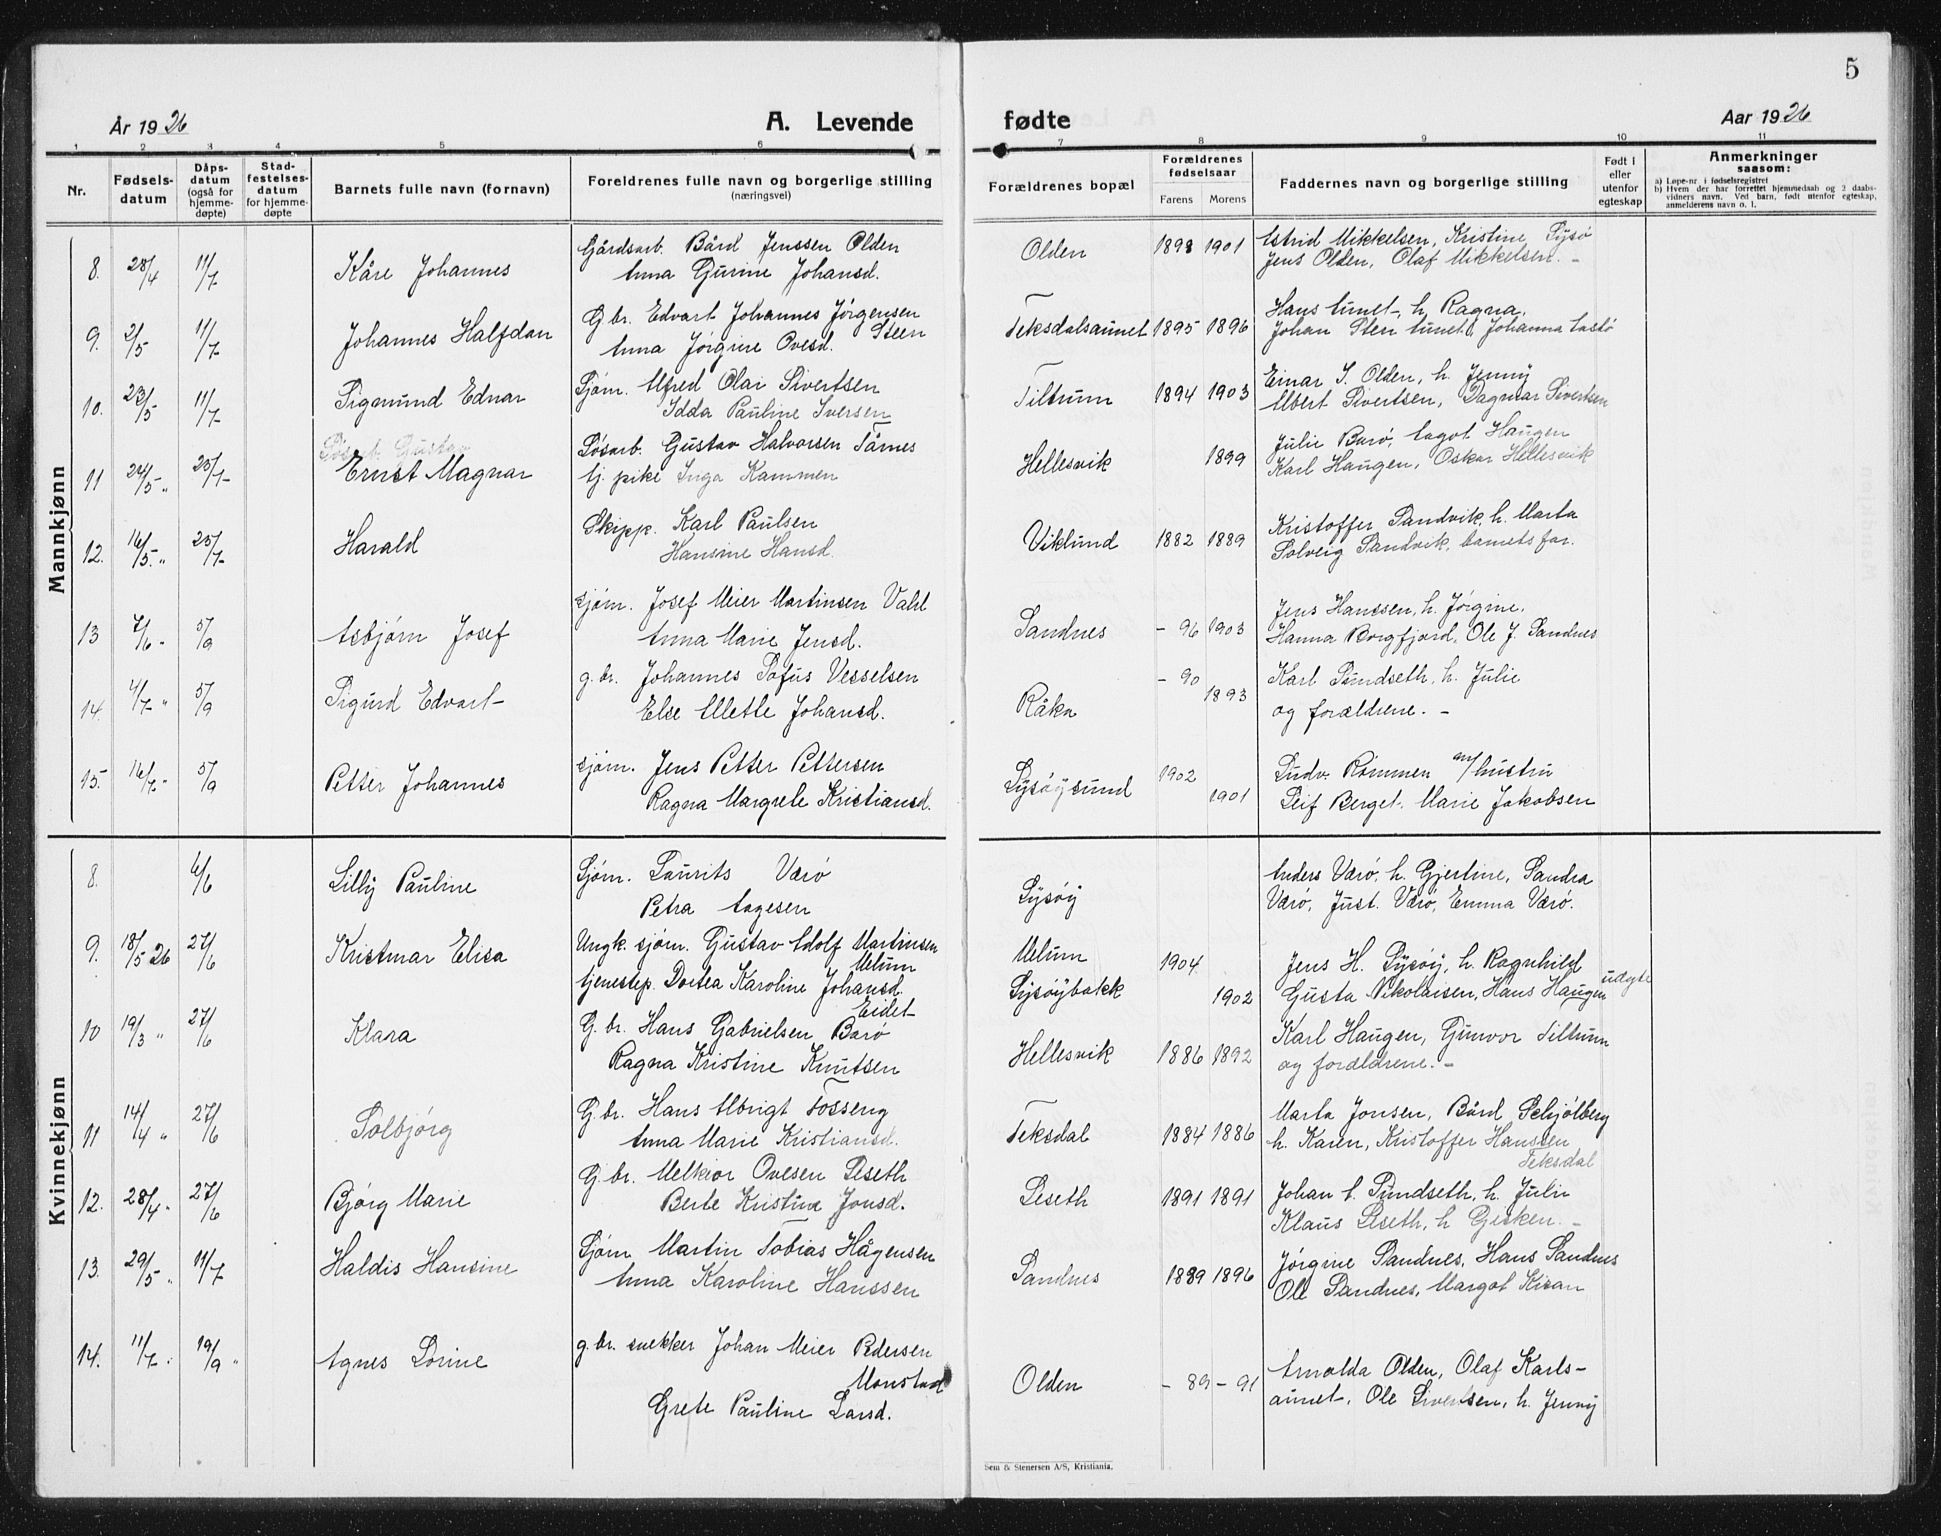 5
År 1926 A. Levende
fødte Aar 1926
1 2 3 4 5 6 7 8 9 10 11
Nr.
Fødsels-
datum
Dåps-
datum
(også for
hjemme-
døpte)
Stad-
festelses-
datum
for hjemme-
døpte
Barnets fulle navn (fornavn)
Foreldrenes fulle navn og borgerlige stilling
(næringsvei)
Forældrenes bopæl
Forældrenes
fødselsaar
Farens Morens
Faddernes navn og borgerlige stilling
Født i
eller
utenfor
egteskap
Anmerkninger
saasom:
a) Løpe-nr. i fødselsregistret
b) Hvem der har forrettet hjemmedaab og 2 daabs-
vidners navn. Ved barn, født utenfor egteskap,
anmelderens navn o. l.
Mannkjønn
8. 28/4 11/7 Kåre Johannes
Gårdsarb. Bård Jenssen Olden
Anna Gurine Johansd.
Olden 1898 1901
Astrid Mikkelsen, Kristine Lysø
Jens Olden, Olaf Mikkelsen. -
9. 2/5 11/7 Johannes Halfdan
G.br. Edvart Johannes Jørgensen
Steen
Anna Jørgine Ovesd.
Teksdalsaunet 1895 1896
Hans Aunet, h. Ragna,
Johan Sten Aunet, Johanna Aastø
10. 23/5 11/7 Sigmund Ednar
Sjøm. Alfred Olai Sivertsen
Idda Pauline Iversen
Tiltrum 1894 1903
Einar S. Olden, h. Jenny
Albert Sivertsen, Dagmar Sivertsen
11 24/5 " 25/7 Ernst Magnar
Løsarb. Gustav
Løsarb. Gustav Halvorsen Tårnes
tj. pike Inga Kammen
Hellesvik 1899
Julie Barø, Aagot Haugen
Karl Haugen, Oskar Hellesvik
12. 16/5 " 25/7 Harald
Skipp. Karl Paulsen
Hansine Hansd.
Viklund 1882 1889
Kristoffer Sandvik, h. Marta
Solveig Sandvik, barnets far.
13 7/6 " 5/9 Asbjørn Josef
sjøm. Josef Meier Martinsen Vahl
Anna Marie Jensd.
Sandnes - 96 1903
Jens Hanssen, h. Jørgine,
Hanna Borgfjord, Ole J. Sandnes
14. 4/7 " 5/9 Sigurd Edvart
g. br. Johannes Sofus Vesselsen
Else Mette Johansd.
Råka - 90 1893
Karl Sundseth, h. Julie
og forældrene. -
15. 16/7 " 5/9 Petter Johannes
sjøm. Jens Petter Pettersen
Ragna Margrete Kristiansd.
Lysøysund 1902 1901
Ludv. Rømmen m/hustru
Leif Berget, Marie Jakobsen
Kvinnekjønn
8. 6/6 Lilly Pauline
Sjøm. Laurits Værø
Petra Aagesen
Lysøy
Anders Værø, h. Gjertine, Sandra
Værø, Just. Værø, Emma Værø.
9. 18/5 26 27/6 Kristmar Elisa
Ungk. sjøm. Gustav Adolf Martinsen
Melum
tjenestep. Dortea Karoline Johansd.
Eidet
Melum 1904
Lysøybakk 1902
Jens H. Lysøy, h. Ragnhild
Gusta Nikolaisen, Hans Haugen
udgte
10 19/3 " 27/6 Klara
G. br. Hans Gabrielsen Barø
Ragna Kristine Knutsen
Hellesvik 1886 1892
Karl Haugen, Gunvor Tiltrum
og forældrene. -
11 14/4 " 27/6 Solbjørg
G. br. Hans Albrigt Fosseng
Anna Marie Kristiansd.
Teksdal 1884 1886
Marta Jonsen, Bård Schjølberg
h. Karen, Kristoffer Hanssen
Teksdal
12. 28/4 " 27/6 Bjørg Marie
G. br. Melkior Ovesen Leseth
Berte Kristine Jonsd.
Leseth 1891 1891
Johan A. Sundseth, h. Julie
Klaus Leseth, h Gjesken. -
13. 29/5 " 11/7 Haldis Hansine
Sjøm Martin Tobias Hågensen
Anna Karoline Hanssen
Sandnes 1889 1896
Jørgine Sandnes, Hans Sandnes
Ole Sandnes, Margot Kisan
14. 11/7 " 19/9 " Agnes Lorine
g. br. snekker Johan Meier Pedersen
Monstad
Grete Pauline Larsd.
Olden - 89 - 91
Arnolda Olden, Olaf Karls-
aunet, Ole Sivertsen, h. Jenny
Sem & Stenersen A/S, Kristiania.